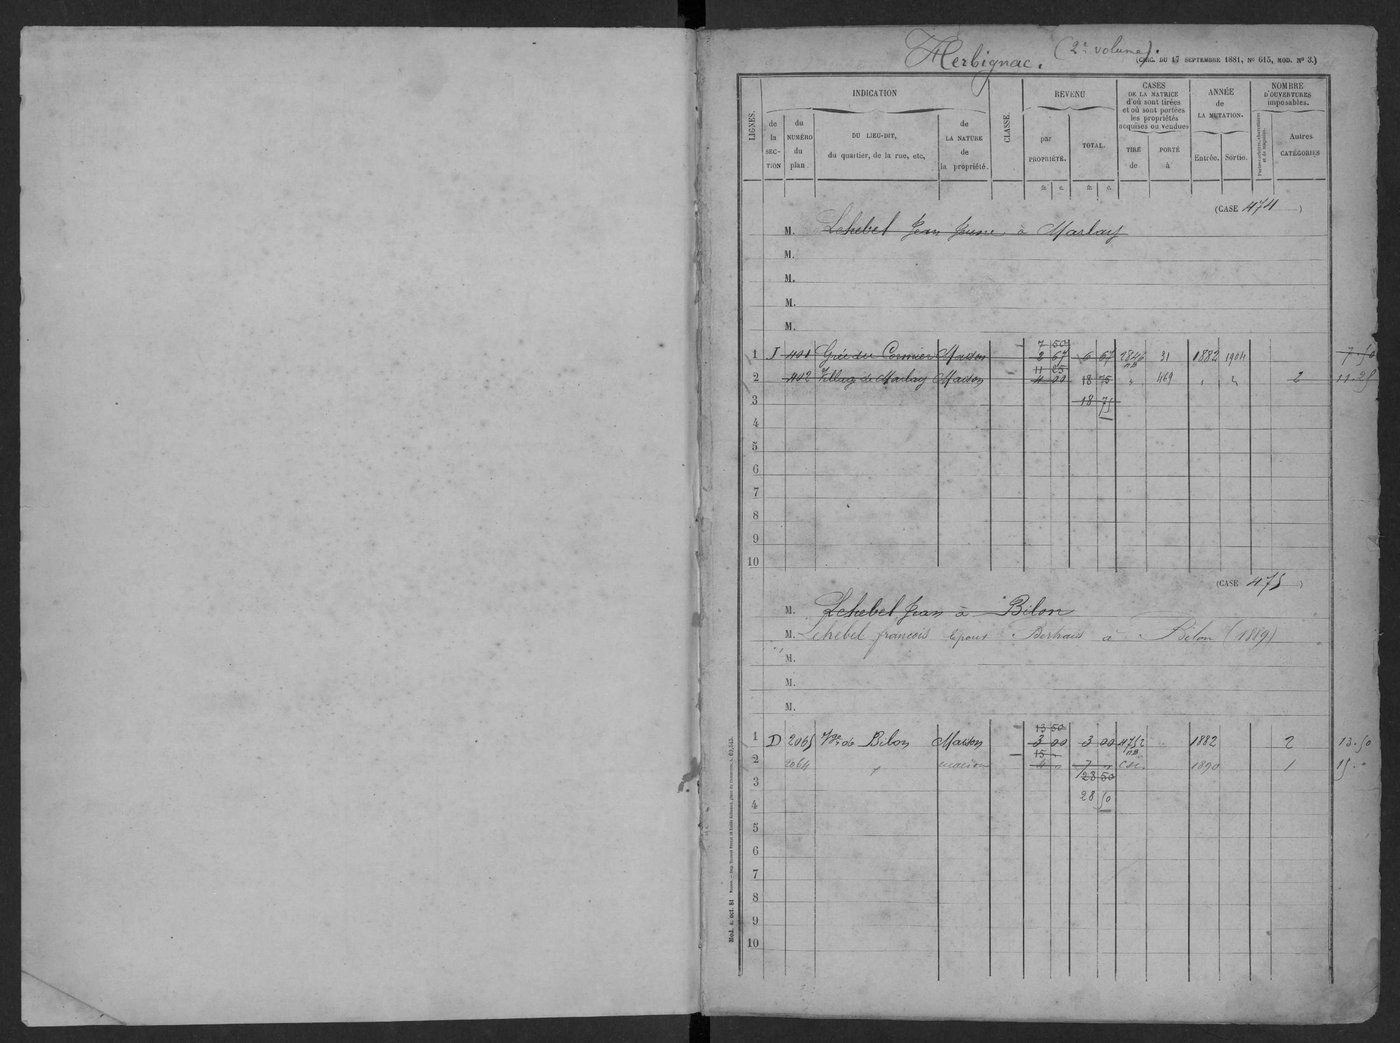 Herbignac. (2e volume).
(CIRC. DU 17 SEPTEMBRE 1881, No 615, MOD. No 3.)
LIGNES. INDICATION CLASSE. REVENU CASES DE LA MATRICE d'où sont tirées et où sont portées les propriétés acquises ou vendues ANNÉE de LA MUTATION. NOMBRE D'OUVERTURES imposables.
de la SECTION du NUMÉRO du plan. DU LIEU-DIT, du quartier, de la rue, etc, de LA NATURE de la propriété. par PROPRIÉTÉ. TOTAL. TIRÉ de PORTÉ à Entrée. Sortie. Autres CATÉGORIES
fr. c. fr. c.
(CASE 474 )
M. Lehebel Jean Jeune à Marlay
M.
M.
M.
M.
7 50
1 J 401 Grée du Cormier Maison 2 67 6 67 2846 31 1882 1904 7.50
11 25
2 402 Village de Marlay Maison 4 00 18 75 " 469 " " 2 11.25
3 18 75
4
5
6
7
8
9
10
(CASE 475 )
M. Lehebel Jean à Bilon
M. Lehebel françois Epoux Bertrand à Bilon (1889)
M.
M.
M.
13 50
1 D 2065 Vge de Bilon Maison 3 00 3 00 4752 1882 2 13.50
15 "
2 2064 " maison 4 " 7 " 1890 1 15."
3 28 50
4 28 50
5
6
7
8
9
10
Mod. 4. oct. 81